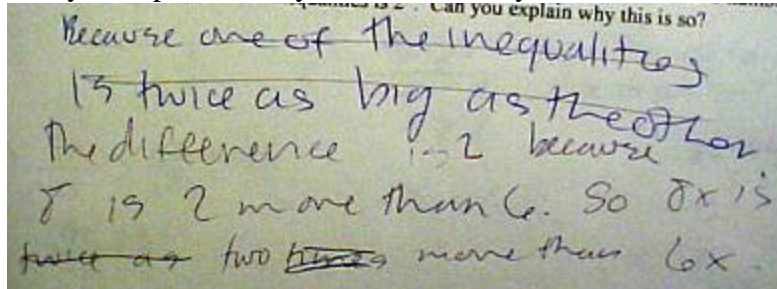 qualities is 2 . Can you explain why this is so?
Because one of the inequalities
is twice as big as the other
The difference is 2 because
8 is 2 more than 6. So 8x is
twice as two times more than 6x.